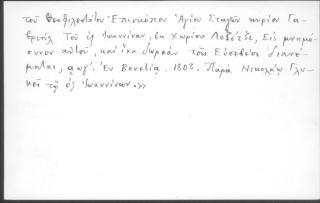 τοῦ Θεοφιλεστάτου Ἐπισκόπου Ἁγίου Σταγῶν κυρίου Γα-
βριήλ Τοῦ ἐξ Ἰωαννίνων, ἐκ χωρίου Εἰς μνημό-
συνον αὐτοῦ, καὶ ἵνα δωρεὰν τοῖς Εὐσεβέσι διανέ-
μηται, αωγ΄. Ἐν Βενετίᾳ. 1803. Παρὰ Νικολάῳ Γλυ-
κεῖ τῷ ἐξ Ἰωαννίνων.»